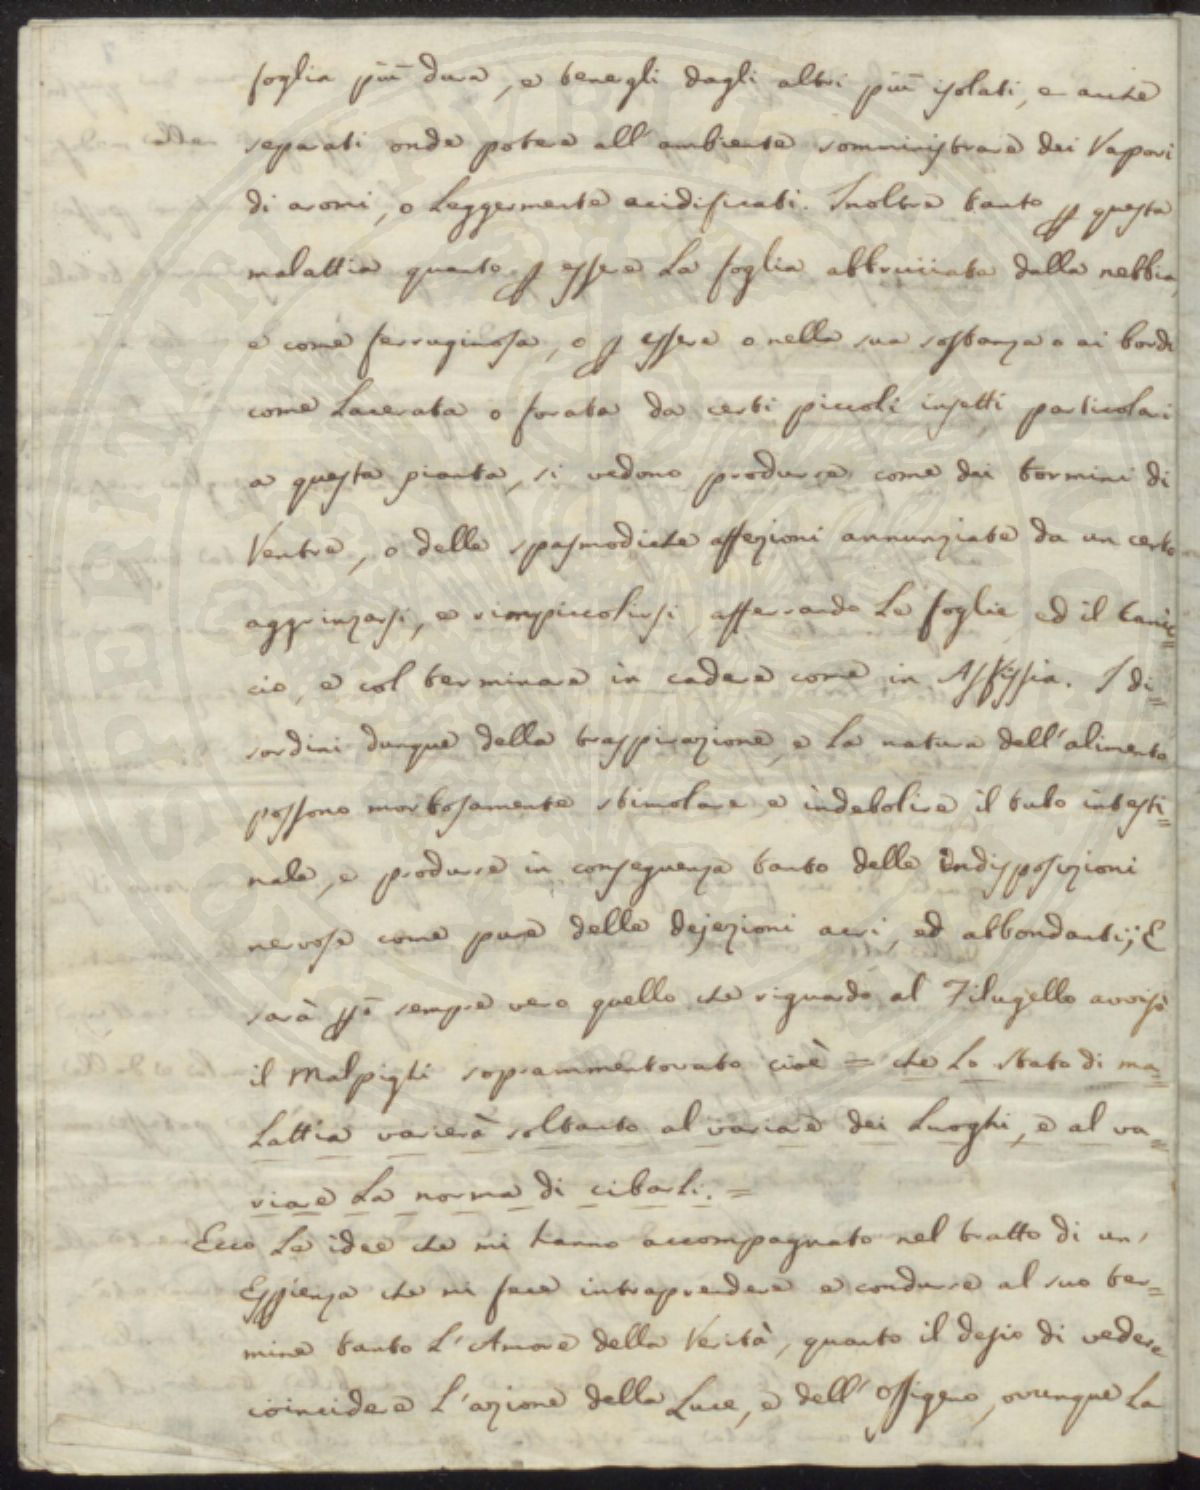 foglia più dura, e tenergli dagli altri più isolati, e anche
separati onde potere all'ambiente somministrare dei Vapori
di aromi, o Leggermente acidificati. Inoltre tanto ꝑ questa
malattia quanto ꝑ essere La foglia abbruciata dalla nebbia,
e come ferruginosa, o ꝑ essere o nella sua sostanza o ai bordi
come Lacerata o forata da certi piccoli insetti particolari
a questa pianta, si vedono prodursi come dei tormini di
Ventre, o delle spasmodiche affezioni annunziate da un certo
aggrinzarsi, e rimpiccolirsi afferrando Le foglie ed il Canic=
cio, e col terminare in cadere come in Asfissia. I di=
sordini dunque della traspirazione, e La natura dell'alimento
possono morbosamente stimolare e indebolire il tubo intesti=
nale, e produrre in conseguenza tanto delle indisposizioni
nervose come pure delle dejezioni acri, ed abbondanti; E
sarà ꝑò sempre vero quello che riguardo al Filugello avvisò
il Malpighi soprammentovato cioè = che Lo stato di ma=
Lattia varierà soltanto al variare dei Luoghi, e al va=
riare La norma di cibarli. =
Ecco Le idee che mi hanno accompagnato nel tratto di un'
Esꝑienza che mi fece intraprendere e condurre al suo ter=
mine tanto L'Amore della Verità, quanto il desio di vedere
coincidere L'azione della Luce, e dell'Ossigeno, ovunque La